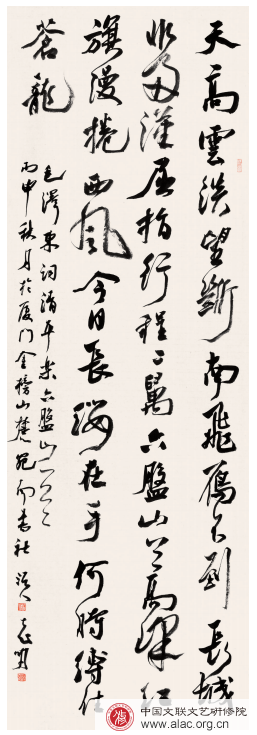 天高雲淡望斷南飛雁不到長城
非好漢屈指行程二萬六盤山上高峰紅
旗漫捲西風今日長纓在手何時縛住
蒼龍
毛澤東詞清平樂六盤山
丙申秋月於厦门金榜山麓
書社
中国文联文艺研修院
www.alac.org.cn